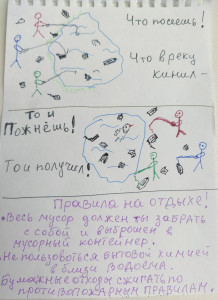 Что посеешь!
Что в реку
кинил-
То и
Пожнёшь!
То и получил!
Правила на отдыхе!
• Весь мусор должен ты забрать
с собой и выброшен в
мусорный контейнер.
• Не пользоваться бытовой химией
в близи водоёма.
Бумажные отходы сжигать по
противопожарным правилам.